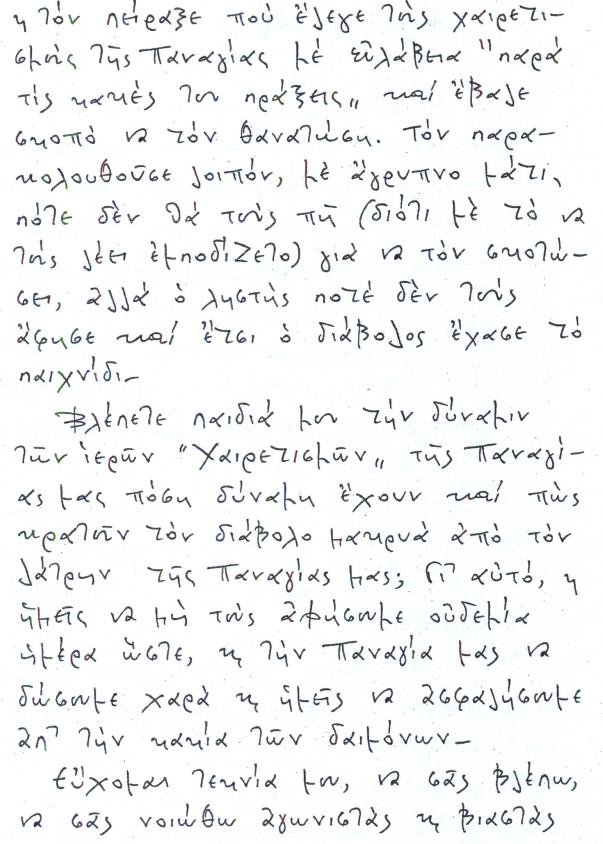 κ τόν πείραξε πού ἔλεγε τούς χαιρετι-
σμούς τῆς Παναγίας μέ εὐλάβεια "παρά
τίς κακές του πράξεις„ καί ἔβαλε
σκοπό να τόν θανατώση. Τόν παρα-
κολουθοῦσε λοιπόν, μέ ἄγρυπνο μάτι,
πότε δέν θά τούς πῆ (διότι μέ τό να
τούς λέει ἐμποδίζετο) γιά να τόν σκοτώ-
σει, ἀλλά ὁ ληστής ποτέ δέν τούς
ἄφησε καί ἔτσι ὁ διάβολος ἔχασε τό
παιχνίδι-
Βλέπετε παιδιά μου τήν δύναμιν
τῶν ἱερῶν "Χαιρετισμῶν„ τῆς Παναγί-
ας μας πόση δύναμη ἔχουν καί πώς
κρατοῦν τόν διάβολο μακρυά ἀπό τόν
λάτρην τῆς Παναγίας μας; Γι' αὐτό, κ
ἡμεῖς να μή τούς ἀφήσωμε οὐδεμία
ἡμέρα ὥστε, κ τήν Παναγία μας να
δώσωμε χαρά κ ἡμεῖς να ἀσφαλήσωμε
ἀπ' τήν κακία τῶν δαιμόνων-
Εὔχομαι τεκνία μου, να σᾶς βλέπω,
να σᾶς νοιώθω ἀγωνιστάς κ βιαστάς